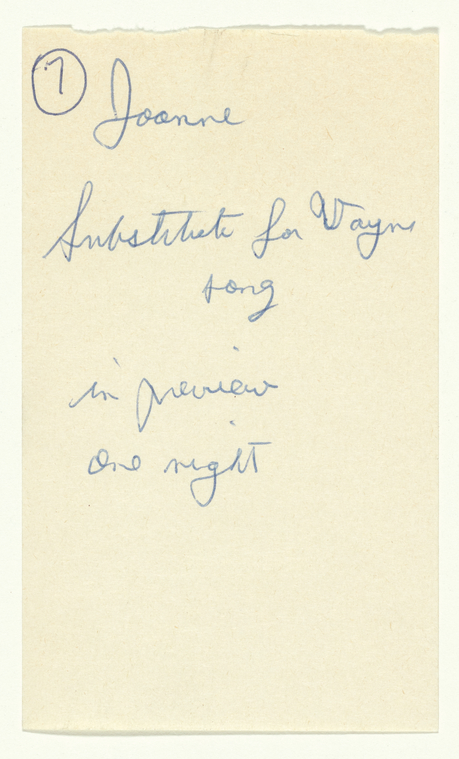 7
Joanne
Substitute for Wayne
song
in preview
one night